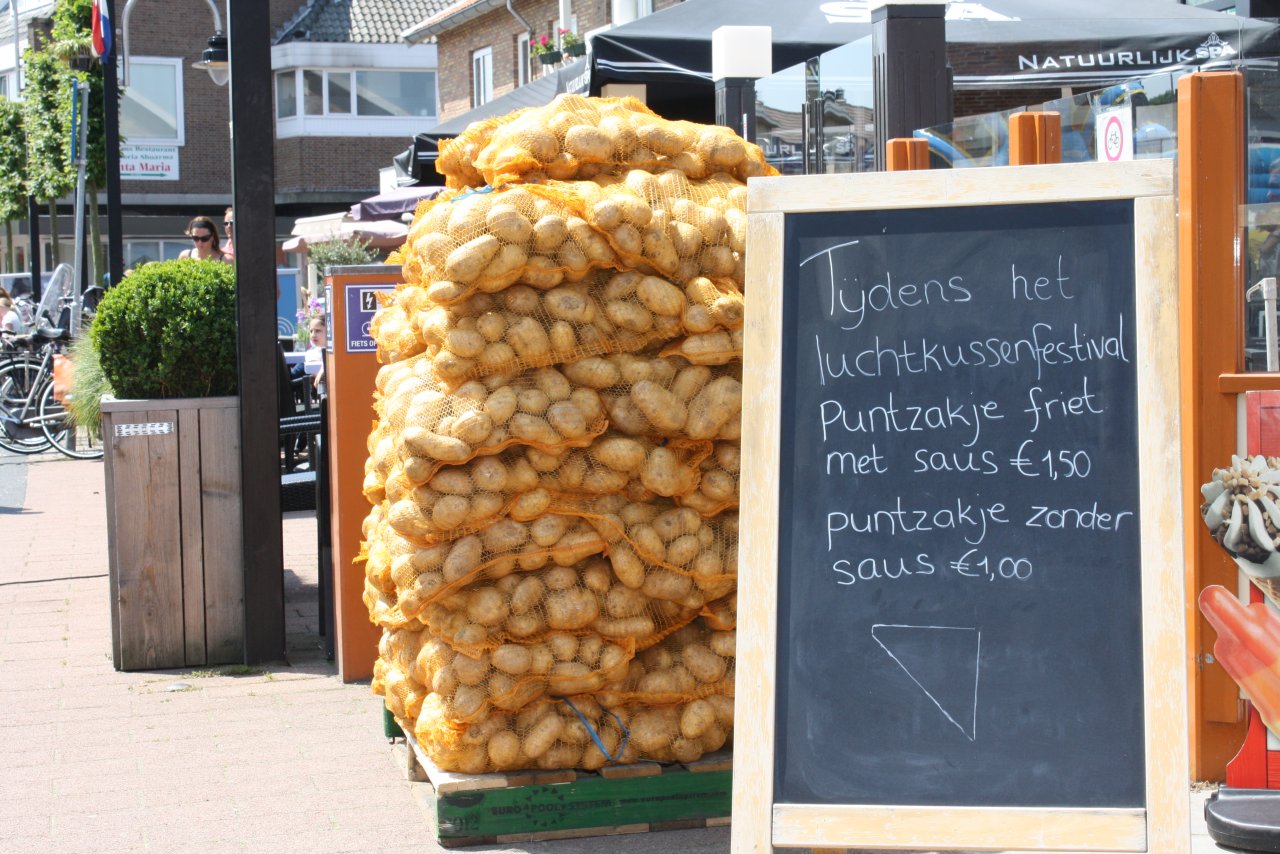 NATUURLIJK SPA
nta Maria
FIETS OP
Tijdens het
luchtkussenfestival
Puntzakje friet
met saus €1,50
puntzakje zonder
saus €1,00
EURO POOL SYSTEM